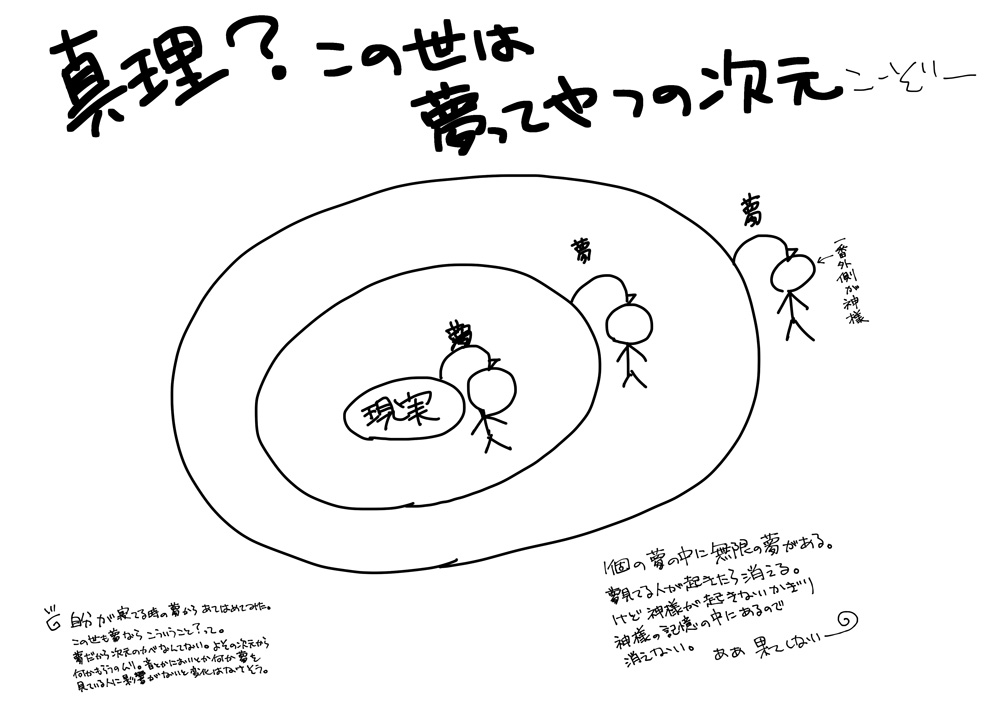 真理？この世は
夢ってやつの次元
こーぞー
夢
夢
夢
一番外側が神様
現実
1個の夢の中に無限の夢がある。
夢見てる人が起きたら消える。
けど神様が起きないかぎり
神様の記憶の中にあるので
消えない。
ああ 果てしない
自分が寝てる時の夢からあてはめてみた。
この世も夢ならこういうこと？って。
夢だから次元のかべなんてない。よその次元から
何かもらうのムリ。音とかにおいとか何か夢を
見ている人に影響がないと変化はなさそう。